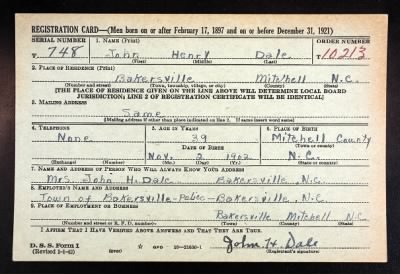 REGISTRATION CARD—(Men born on or after February 17, 1897 and on or before December 31, 1921)
SERIAL NUMBER 1. NAME (Print) ORDER NUMBER
T 748 John Henry Dale T 10213
(First) (Middle) (Last)
2. PLACE OF RESIDENCE (Print)
Bakersville Mitchell N.C.
(Number and street) (Town, township, village, or city) (County) (State)
[THE PLACE OF RESIDENCE GIVEN ON THE LINE ABOVE WILL DETERMINE LOCAL BOARD
JURISDICTION; LINE 2 OF REGISTRATION CERTIFICATE WILL BE IDENTICAL]
3. MAILING ADDRESS
Same
[Mailing address if other than place indicated on line 2. If same insert word same]
4. TELEPHONE 5. AGE IN YEARS 6. PLACE OF BIRTH
None 39 Mitchell County
DATE OF BIRTH (Town or county)
Nov. 2 1902 N.C.
(Exchange) (Number) (Mo.) (Day) (Yr.) (State or country)
7. NAME AND ADDRESS OF PERSON WHO WILL ALWAYS KNOW YOUR ADDRESS
Mrs. John H. Dale Bakersville, N.C.
8. EMPLOYER'S NAME AND ADDRESS
Town of Bakersville - Bakersville, N.C.
9. PLACE OF EMPLOYMENT OR BUSINESS
Bakersville Mitchell N.C.
(Number and street or R. F. D. number) (Town) (County) (State)
I AFFIRM THAT I HAVE VERIFIED ABOVE ANSWERS AND THAT THEY ARE TRUE.
D. S. S. Form 1
(Revised) GPO John H. Dale
(Registrant's signature)